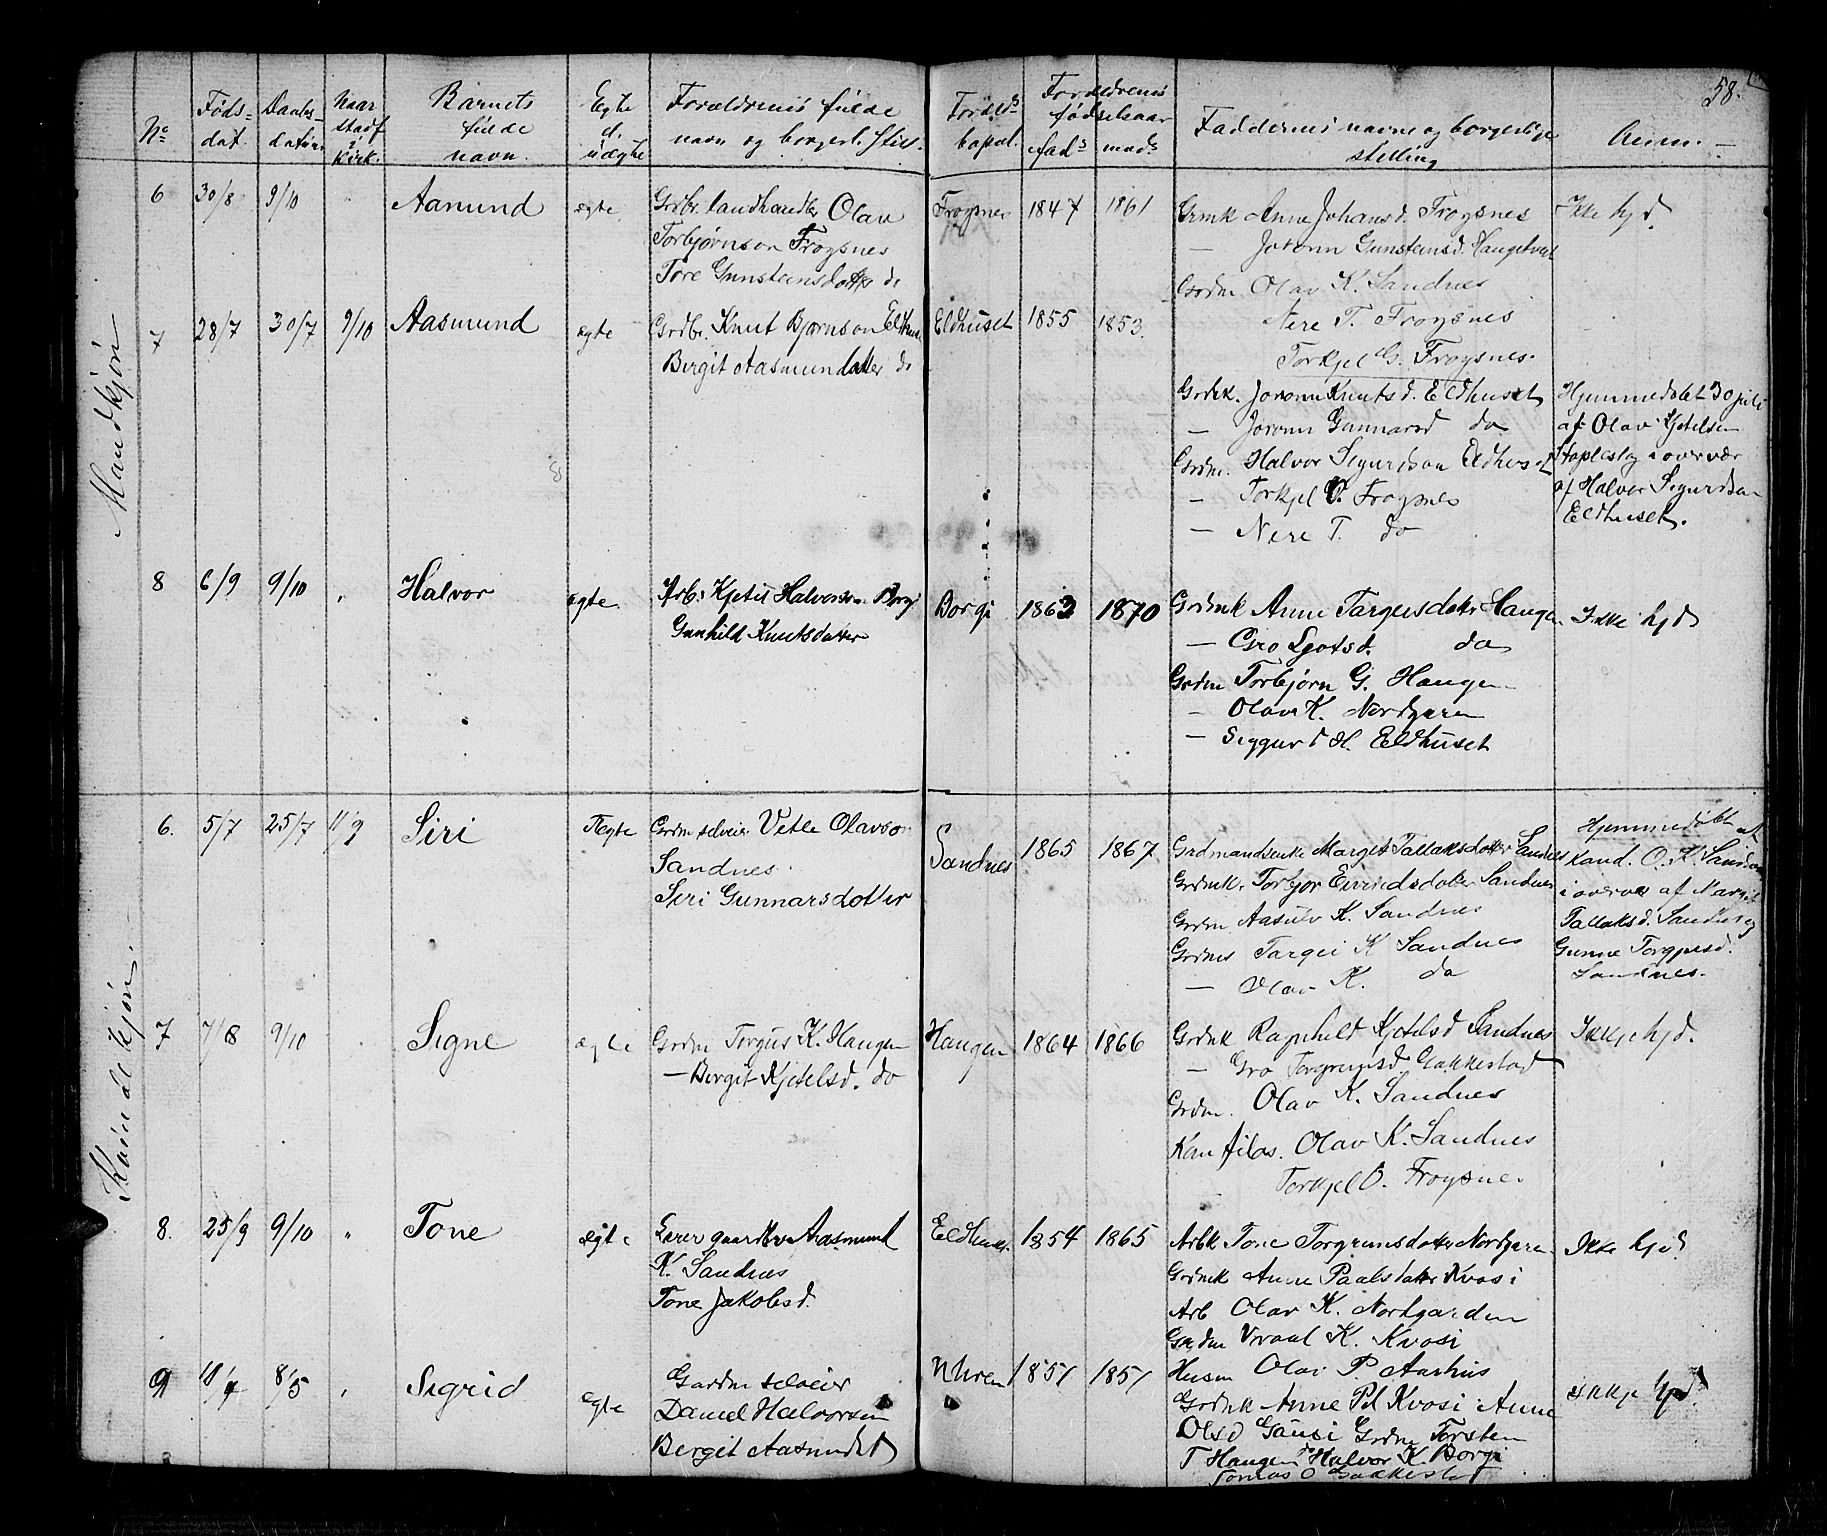 58.
No
Føds-
dat.
Daabs-
datum
Naar
stadf.
i
Kirk.
Barnets
fulde
navn.
Egte
el.
uægte
Forældrenes fulde
navn og borgerl. still.
Foræld^s
bopæl.
Forældrenes
fødselsaar
fad^s mod^s
Faddernes navne og borgerlige
stilling
Anm.
Mandkjøn
6 30/8 9/10 Aamund ægte
Grdbr. landhandler Olav
Torbjørnson Frøysnes
Tore Gunsteinsdatter do
Frøysnes 1847 1861
Grmk Anne Johansd. Frøysnes
— Joronn Gunsteinsd. Haugetveit
Grdm. Olav K. Sandnes
Nere T. Frøysnes
Torkjel G. Frøysnes.
Ikke hjd.
7 28/7 30/7 9/10 Aasmund ægte
Grdbr. Knut Bjørnson Eldhus
Birgit Aasmundatter do
Eldhuset 1855 1853.
Grdmk. Joronn Knutsd. Eldhuset
— Joronn Gunnarsd do
Grdm. Halvor Sigurdson Eldhuset
— Torkjel V. Frøysnes
— Nere T. do
Hjemmedøbt 30 juli
af Olav Kjetelsen
i overvær
af Halvor Sigurdson
Eldhuset.
8 6/9 9/10 " Halvor ægte.
Arb. Kjetil Halvorson Borgi
Gunhild Knutsdatter
Borgi 1863 1870
Grdmk Anne Targeisdotter Haugen
— Gro Ljotsd. do
Grdm Torbjørn G. Haugen
— Olav K. Nordgaren
— Siggurd H. Eldhuset
Ikke hjd
Kvindekjøn.
6. 5/7 25/7 11/9 Siri Ægte
Grdm selveier Vetle Olavson
Sandnes
Siri Gunnarsdotter
Sandnes 1865 1867
Grdmandsenke Margit Tallaksdotter Sandnes
Grdmk. Torbjør Eivindsdotter Sandnes
Grdm. Aasulv K. Sandnes
Grdm Targei K Sandnes
— Olav K. do
Hjemmedøbt af
Kand. O. K. Sandnes
i overvær af Margit
Tallaksd. Sandnes og
Gunne Torgjusd.
Sandnes.
7 7/8 9/10 Signe ægte
Grdm Torgus K. Haugen
— Bergit Kjetelsd. do
Haugen 1864 1866
Grdmk Ragnhild Kjetelsd Sandnes
— Gro Torgrimsd. Gakkestad
Grdm. Olav K. Sandnes
Kan filos. Olav K. Sandnes
Torkjel O. Frøysnes
Ikkje hjd.
8. 25/9 9/10 " Tone ægte
Lærer gaardbr. Aasmund
K. Sandnes
Tone Jakobsd.
Eldhus. 1854 1865
Arbk Tone Torgrimsdatter Nordgaren
Grdmk Anne Paalsdatter Kvasi
Arb Olav K. Nordgarden
Grdm Vraal K. Kvasi
Husm Olav P. Aarhus
Ikke hjd.
9 8/5 " Sigrid egte
Gardm selveier
Daniel Halvorsen
Bergit Aasmundsd
1857 1857
Grdmk Anne Pd Kvasi Anne
Olsd Gausi Grdm Torsten
T Haugen Halvor K. Borgi
Tomas O Gakkestad
Ikkje hjd.